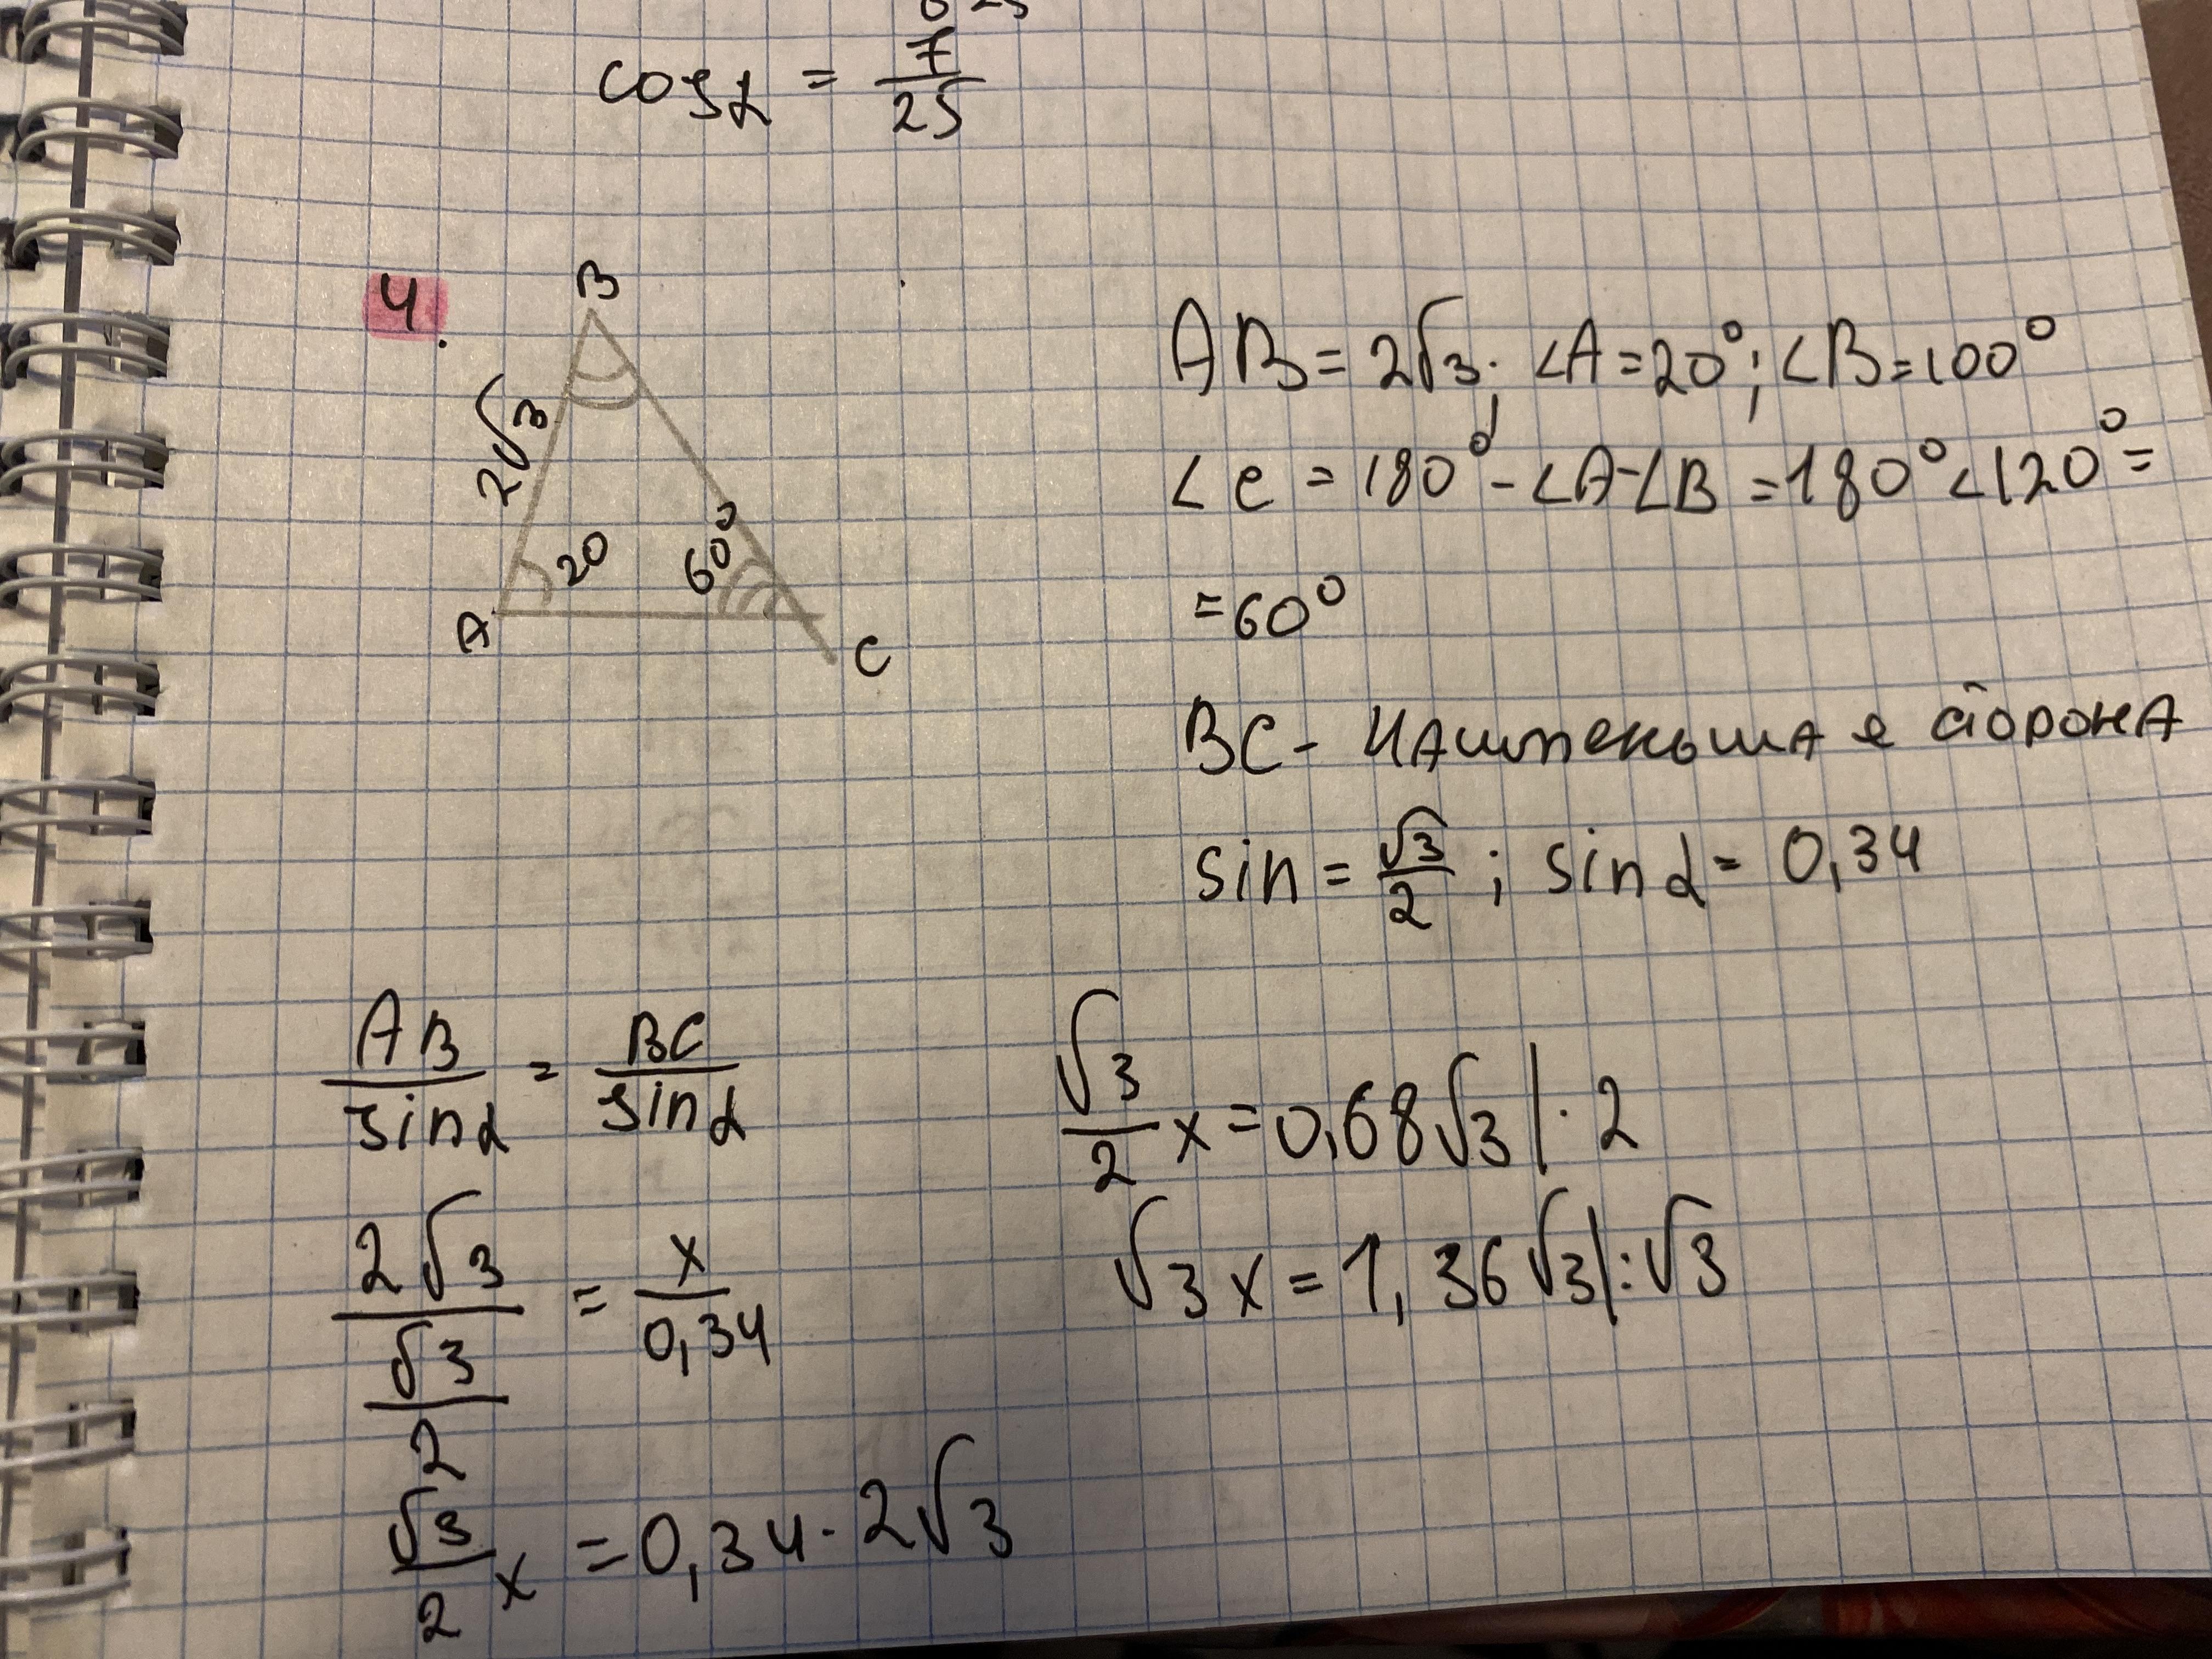 cos α = 7/25
4.
B
2√3
20
60°
A
C
AB = 2√3; ∠A = 20°; ∠B = 100°
∠C = 180° - ∠A - ∠B = 180° < 120° =
= 60°
BC - сторона
sin = √3/2 ; sin α = 0,34
AB/sin α = BC/sin α
2√3/(√3/2) = x/0,34
√3/2 x = 0,34 · 2√3
√3/2 x = 0,68√3 | · 2
√3 x = 1,36√3 | : √3